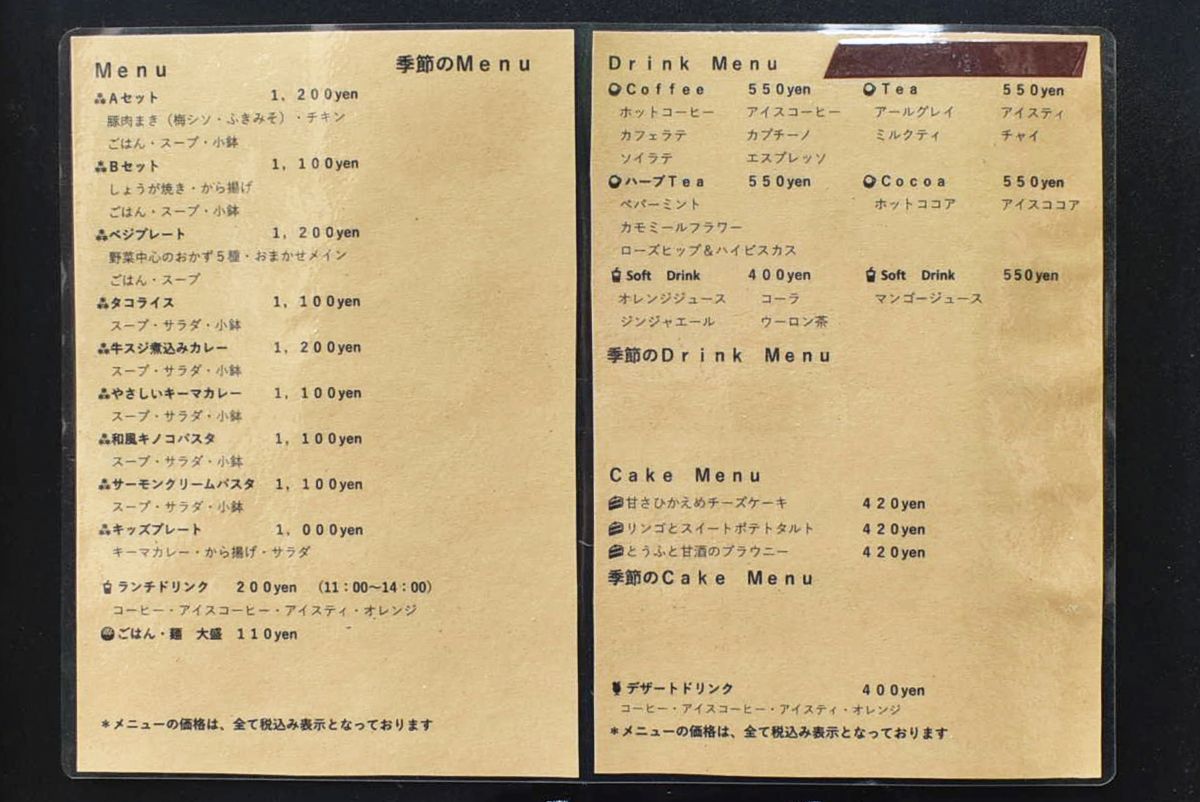 Menu
季節のMenu
Aセット 1,200yen
豚肉まき(梅シソ・ふきみそ)・チキン
ごはん・スープ・小鉢
Bセット 1,100yen
しょうが焼き・から揚げ
ごはん・スープ・小鉢
ベジプレート 1,200yen
野菜中心のおかず5種・おまかせメイン
ごはん・スープ
タコライス 1,100yen
スープ・サラダ・小鉢
牛スジ煮込みカレー 1,200yen
スープ・サラダ・小鉢
やさしいキーマカレー 1,100yen
スープ・サラダ・小鉢
和風キノコパスタ 1,100yen
スープ・サラダ・小鉢
サーモンクリームパスタ 1,100yen
スープ・サラダ・小鉢
キッズプレート 1,000yen
キーマカレー・から揚げ・サラダ
ランチドリンク 200yen (11:00~14:00)
コーヒー・アイスコーヒー・アイスティ・オレンジ
ごはん・麺 大盛 110yen
*メニューの価格は、全て税込み表示となっております
Drink Menu
Coffee 550yen Tea 550yen
ホットコーヒー アイスコーヒー アールグレイ アイスティ
カフェラテ カプチーノ ミルクティ チャイ
ソイラテ エスプレッソ
ハーブTea 550yen Cocoa 550yen
ペパーミント ホットココア アイスココア
カモミールフラワー
ローズヒップ&ハイビスカス
Soft Drink 400yen Soft Drink 550yen
オレンジジュース コーラ マンゴージュース
ジンジャエール ウーロン茶
季節のDrink Menu
Cake Menu
甘さひかえめチーズケーキ 420yen
リンゴとスイートポテトタルト 420yen
とうふと甘酒のブラウニー 420yen
季節のCake Menu
デザートドリンク 400yen
コーヒー・アイスコーヒー・アイスティ・オレンジ
*メニューの価格は、全て税込み表示となっております